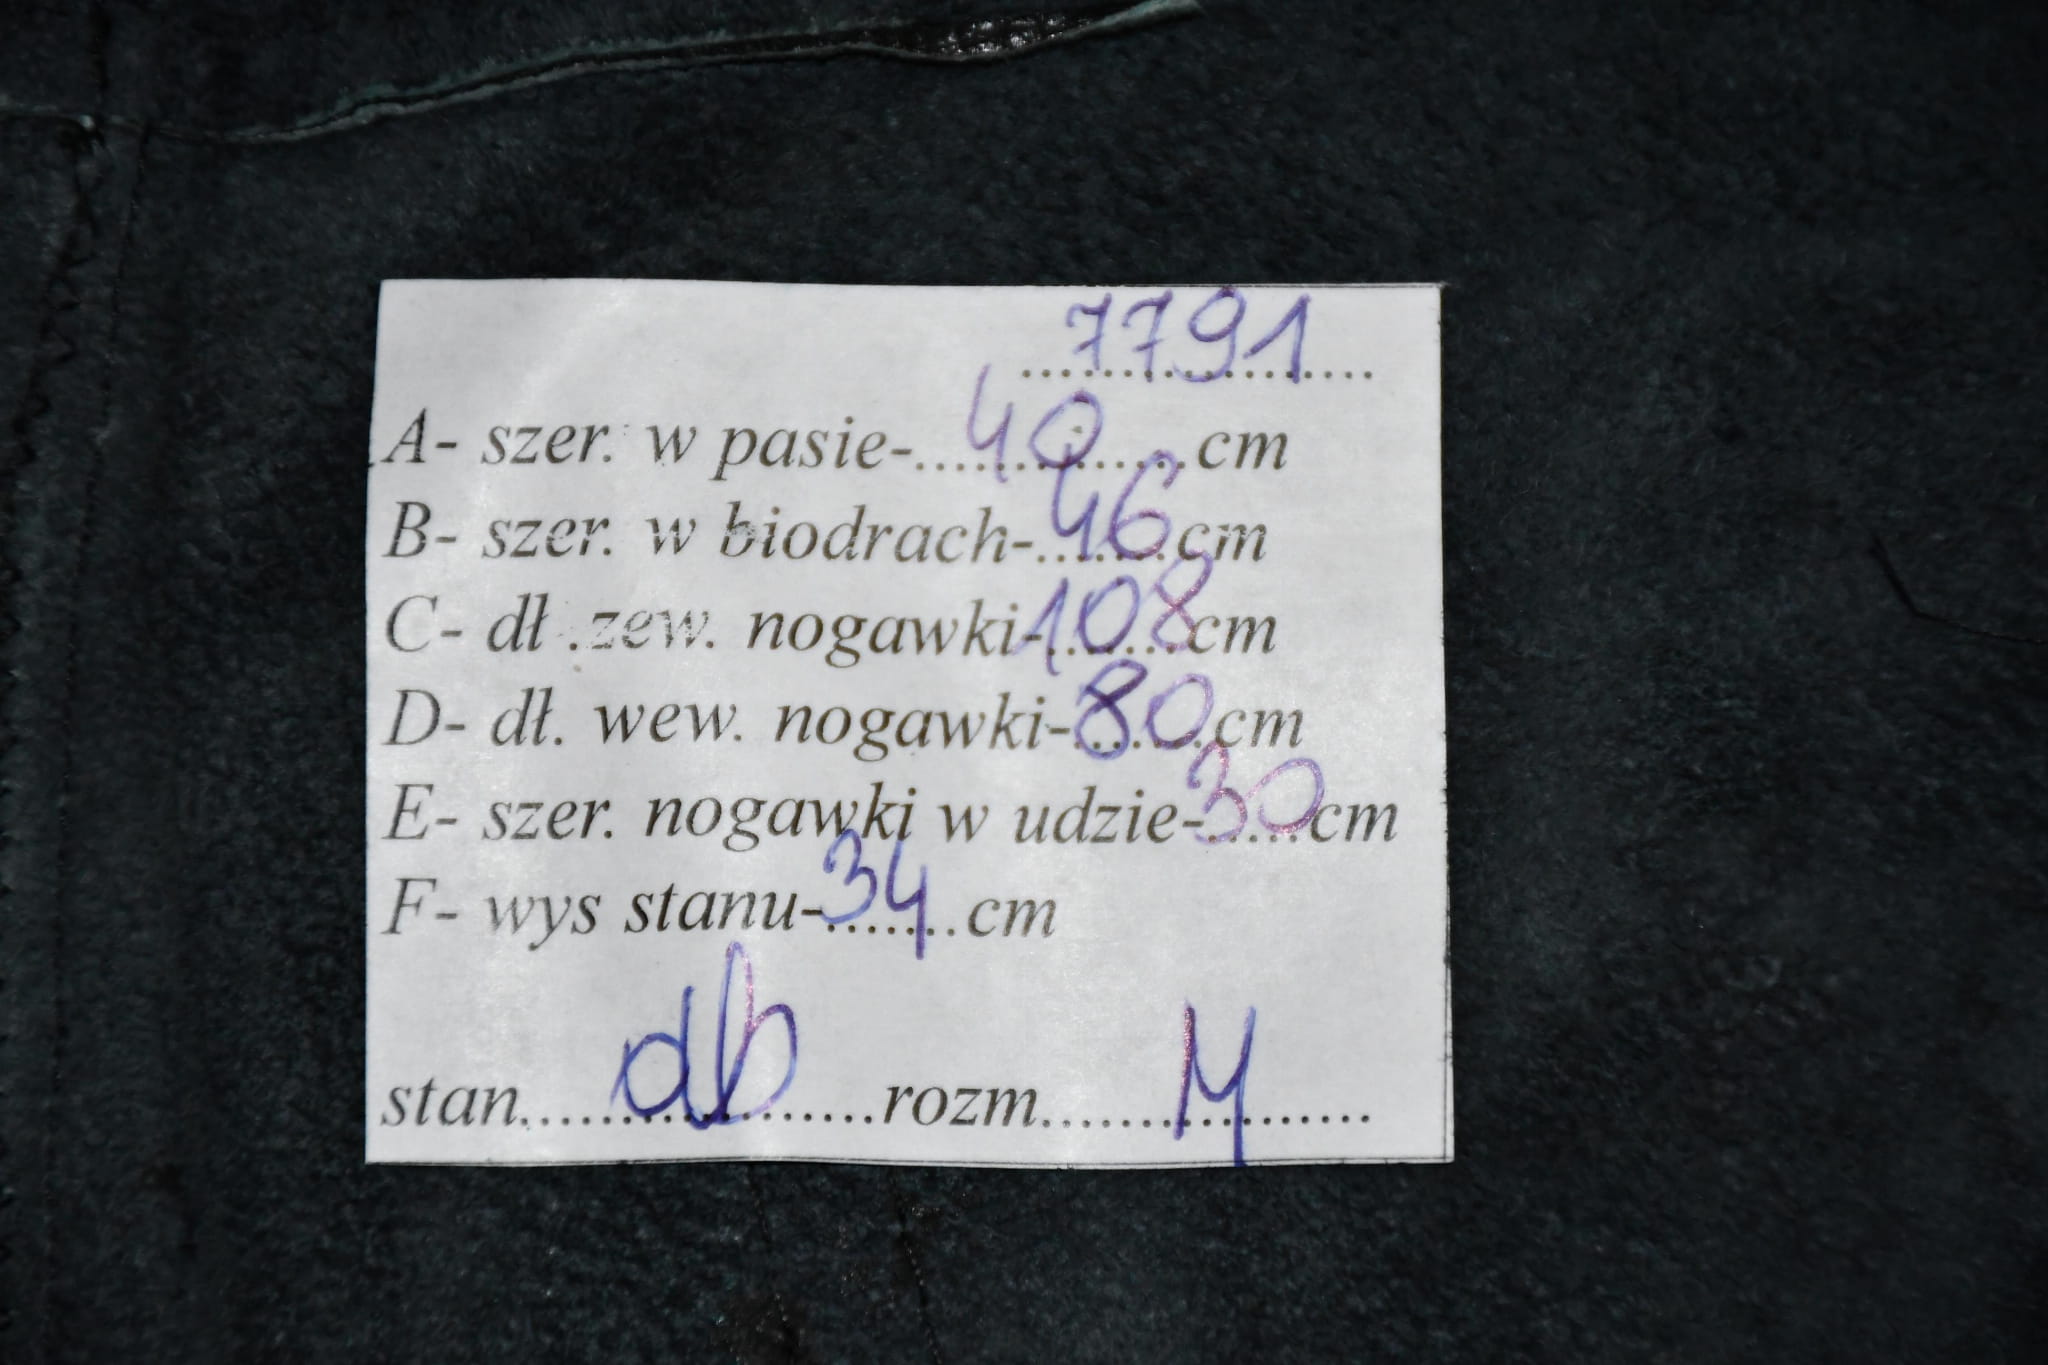 7791
A- szer. w pasie-....40....cm
B- szer. w biodrach-...46...cm
C- dł .zew. nogawki-108cm
D- dł. wew. nogawki-80cm
E- szer. nogawki w udzie-30cm
F- wys stanu-34 cm
stan....db....rozm....M....